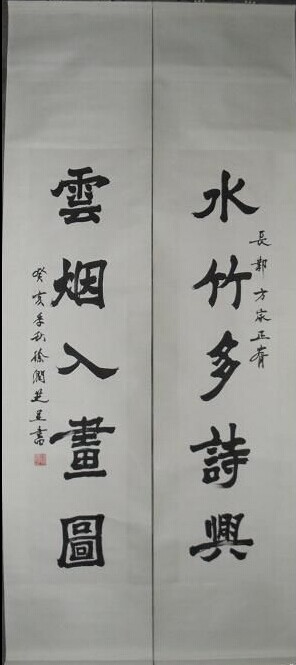 水竹多詩興
長 方家正
雲烟入畫圖
癸亥季秋徐潤芝 書